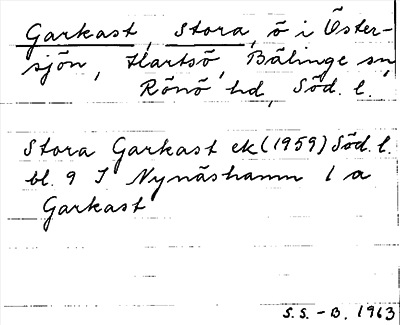 Garkast, Stora, ö i Öster-
sjön, Hartsö, Bälinge sn,
Rönö hd, Söd. l.
Stora Garkast ek (1959) Söd. l.
bl. 9 I Nynäshamn 1 a
Garkast
S.S. - B. 1963